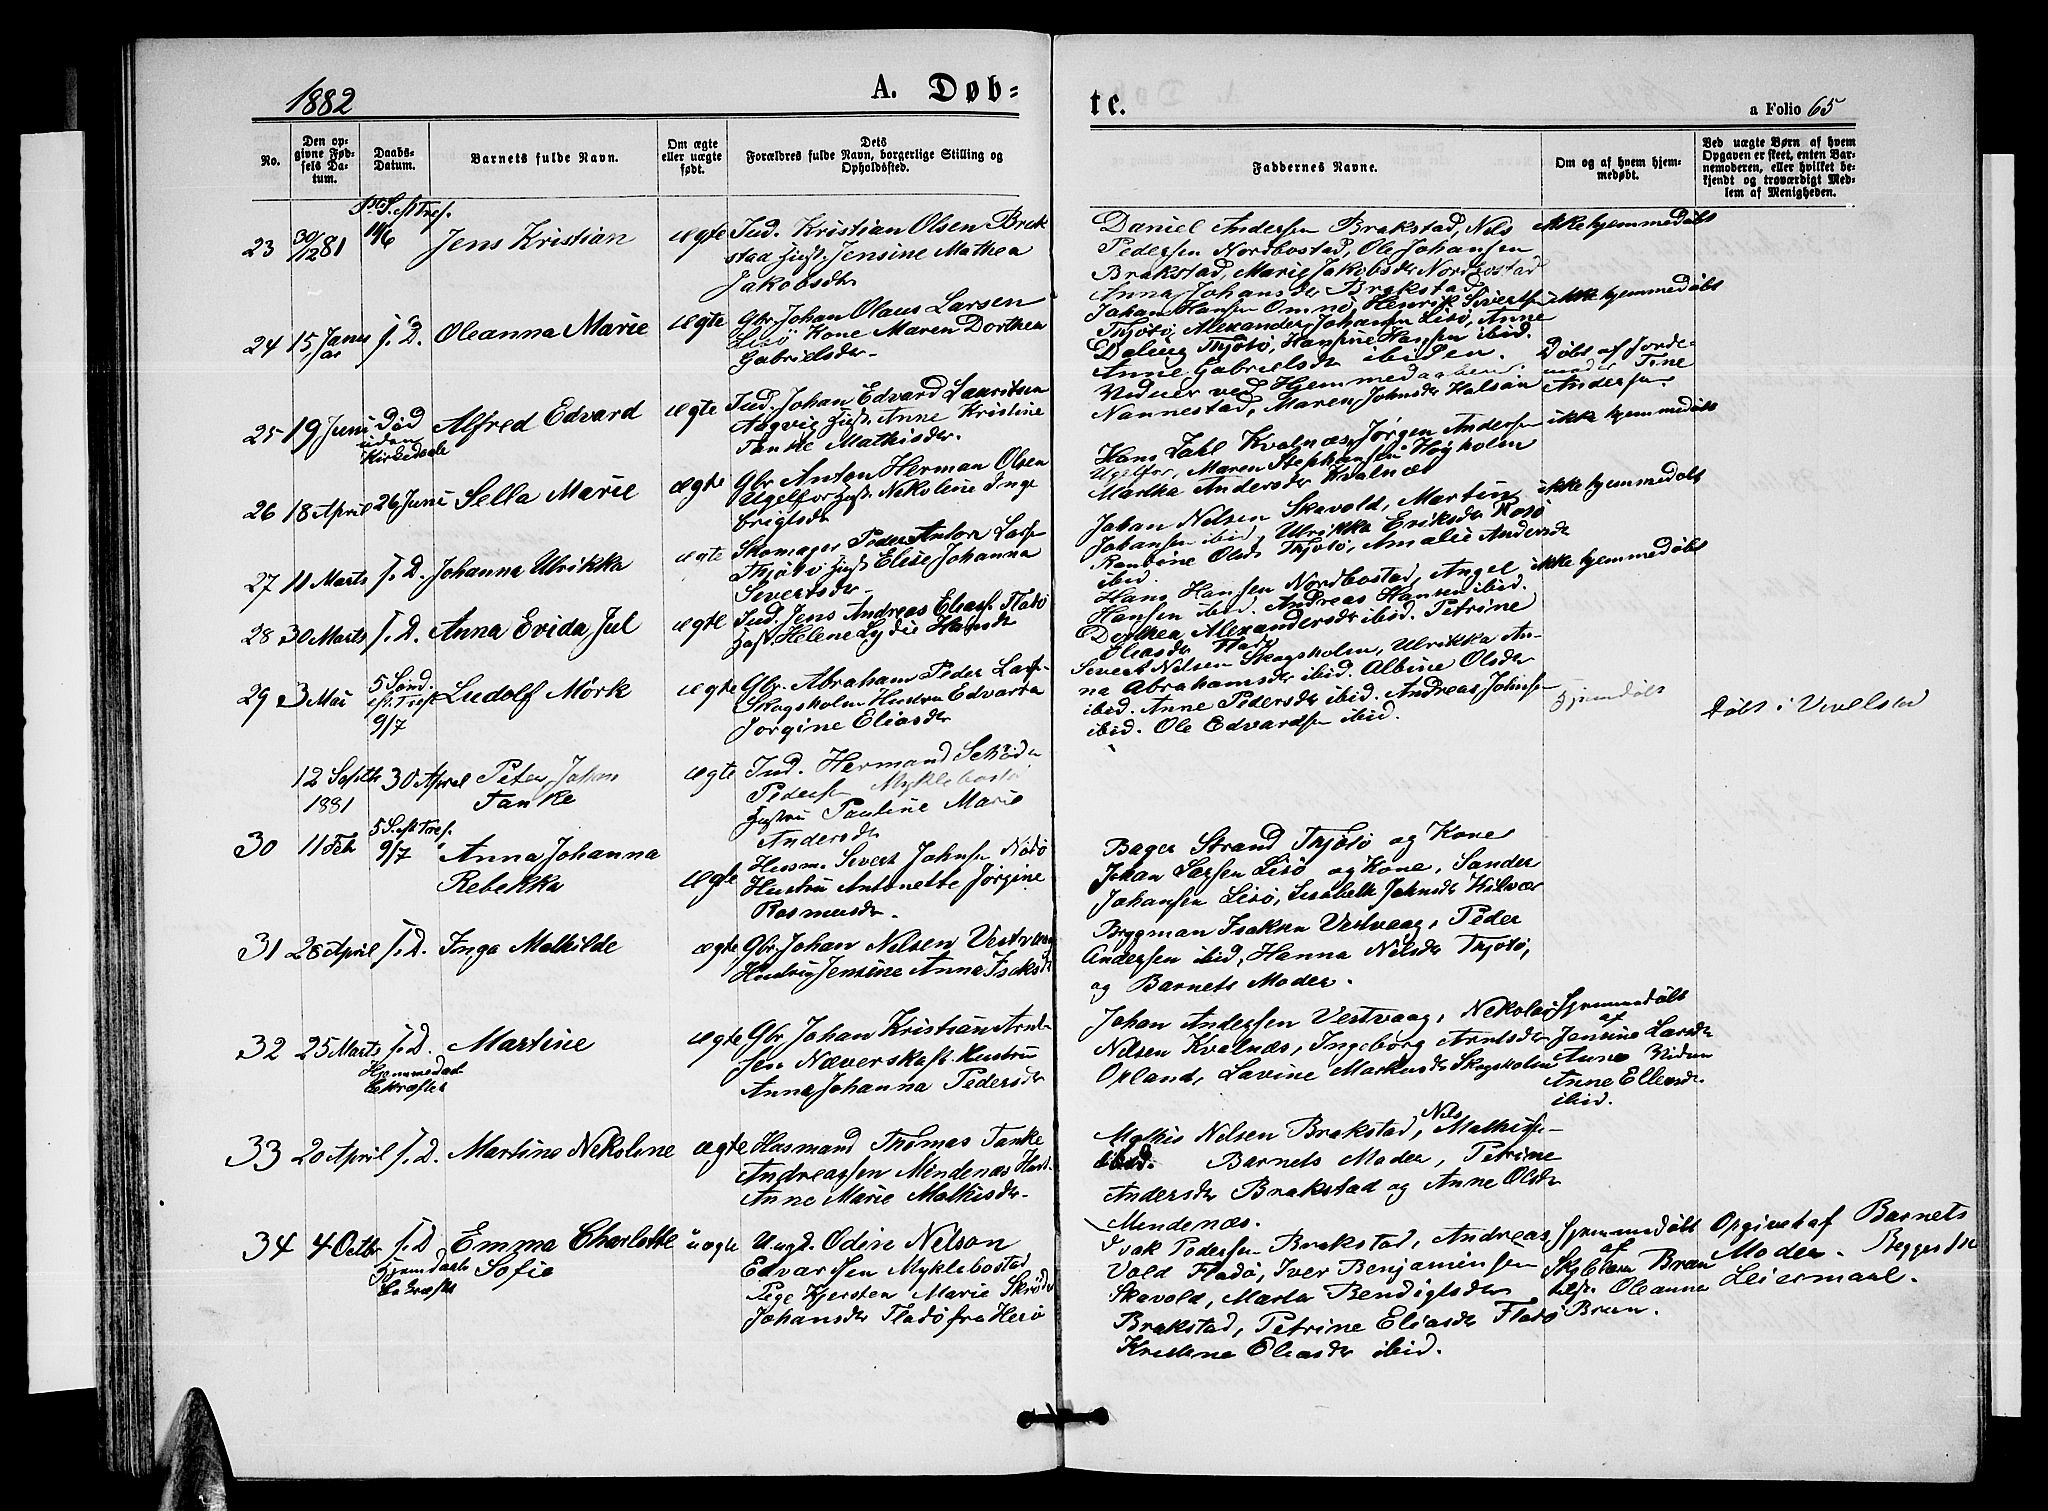 1882
A. Døb-
te.
a Folio 65
No.
Den op-
givne Fød-
sels Da-
tum.
Daabs-
Datum.
Barnets fulde Navn.
Om ægte
eller uægte
født.
Dets
Forældres fulde Navn, borgerlige Stilling og
Opholdssted.
Faddernes Navne.
Om og af hvem hjem-
medøbt.
Ved uægte Børn af hvem
Opgaven er skeet, enten Bar-
nemoderen, eller hvilket be-
kjendt og troværdigt Med-
lem af Menigheden.
23
30/12 81
S. eft Tref.
11/6
Jens Kristian
ægte
Ind. Kristian Olsen Brek
stad Hust. Jensine Mathea
Jakobsdr
Daniel Andersen Brakstad, Nels
Pedersen Nordbostad, Ole Johansen
Brakstad, Marie Jakobsdr Nordbostad
Anna Johansdr Brakstad
ikke hjemmedøbt
24
15 Janu
ar
s. D.
Oleanna Marie
ægte
Gbr. Johan Olaus Larsen
Lisø Kone Maren Dorthea
Gabrielsdr
Johan Hansen Omnø, Henrik Sivertsen
Thjøtø, Alexander Johansen Lisø, Anne
Daling Thjøtø, Hansine Hansen ibid.
Anne Gabrielsdr ibiden.
ikke hjemmedøbt
25
19 Juni
Død
uden
Kirkedaab
Alfred Edvard
ægte
Ind. Johan Edvard Lauritsen
Aagvig Hust. Anne Kristine
Tanke Mathisdr.
Vidner ved Hjemmedaaben:
Nannestad, Maren Johnsdr Halsøn
Døbt af Jorde-
moder Tine
Andersen.
26
18 April
26 Juni
Sella Marie
ægte
Gbr Anton Herman Olsen
Ugelfor Hust. Nekoline Inge
brigtsdr
Hans Zahl Kvalnæs, Jørgen Andersen
Ugelfor, Maren Stephansen Høgholm
Martha Andersdr Kvalnæs
ikke hjemmedøbt
27
11 Marts
s. D.
Johanna Ulrikka
ægte
Skomager Peder Anton Larsen
Thjøtø Hust Elise Johanna
Severtsdr
Johan Nelsen Skavold, Martin
Johansen ibid, Ulrikka Eriksdr Rosø
Olsdr Thjøtø, Amalie Andersdr
ibid.
ikke hjemmedøbt
28
30 Marts
s. D.
Anna Evida Jul
ægte
Ind. Jens Andreas Eliass. Fladø
Hust Helene Lydie Hansdr
Hans Hansen Nordbostad, Angel
Hansen ibid. Andreas Hansen ibid.
Dorthea Alexandersdr ibid. Petrine
Eliasdr Fladø
ikke hjemmedøbt
29
3 Mai
5 Sønd.
eft. Tref
9/7
Ludolf Mørk
ægte
Gbr. Abraham Peder Lars-
Skogsholm Hustru Edvarda
Jorgine Eliasdr
Severt Nelsen Skogsholm, Ulrikka An-
na Abrahamsdr ibid. Albine Olsdr
ibid. Anne Pedersdr ibid. Andreas Johnsen
ibid. Ole Edvardsen ibid.
Hjemdøbt
12 Septbr
1881
30 April
Peter Johan
Tanke
ægte
Ind. Hermand Schøder
Pedersen Myklebostad
Hustru Pauline Marie
Andersdr
Døbt i Vevelstad
30
11 Feb
5 S. eft Tref.
9/7
Anna Johanna
Rebekka
ægte
Husm. Severt Johnsen Nødø
Hustru Antonette Jørgine
Rasmusdr.
Bager Strand Thjøtø og Kone
Johan Larsen Lisø og Kone, Sander
Johansen Lisø, Lisabeth Johnsdr Hilvær
31
28 April
s. D.
Inga Mathilde
ægte
Gbr. Johan Nelsen Vestvaag
Hustru Jensine Anna Isaksdr
Brygman Isaksen Vestvaag, Peder
Andersen ibid, Hanna Nelsdr Thjøtø,
og Barnets Moder.
32
25 Marts
s. D.
Hjemmedaab
bekræftet
Martine
ægte
Gbr. Johan Kristian Arnt-
sen Næverskaft Hustru
Anna Johanna Pedersdr
Johan Andersen Vestvaag, Nekolai
Nelsen Kvalnæs, Ingeborg Arntsdr
Opland, Lavine Markusdr Skogsholm
Hjemmedøbt
af
Jensine Larsdr
Anne
Anne Ellensdr
ibid.
33
20 April
s. D.
Martine Nekoline
ægte
Husmand Thomas Tanke
Andreassen Mindenæs Hust.
Anne Marie Mathisdr
Mathis Nelsen Brakstad, Nils Mathisen
ibid. Barnets Moder, Petrine
Andersdr Brakstad og Anne Olsdr
Mindenæs.
34
4 Octbr
s. D
Hjemdaab
bekræftet
Emma Charlotte
Sofie
uægte
Ungk. Odin Nelson
Edvardsen Myklebostad
Pige Kjersten Marie Skrøder
Johansdr Fladø fra Herø
Isak Pedersen Brakstad, Andreas
Vold Fladø, Iver Benjaminsen
Skavold, Marta Bendigtsdr
Brakstad, Petrine Eliasdr Fladø
Kristine Eliasdr ibid.
Hjemmedøbt
af
Brun
Oleanna
Brun.
Opgivet af Barnets
Moder. Begges 1ste
Leiermaal.